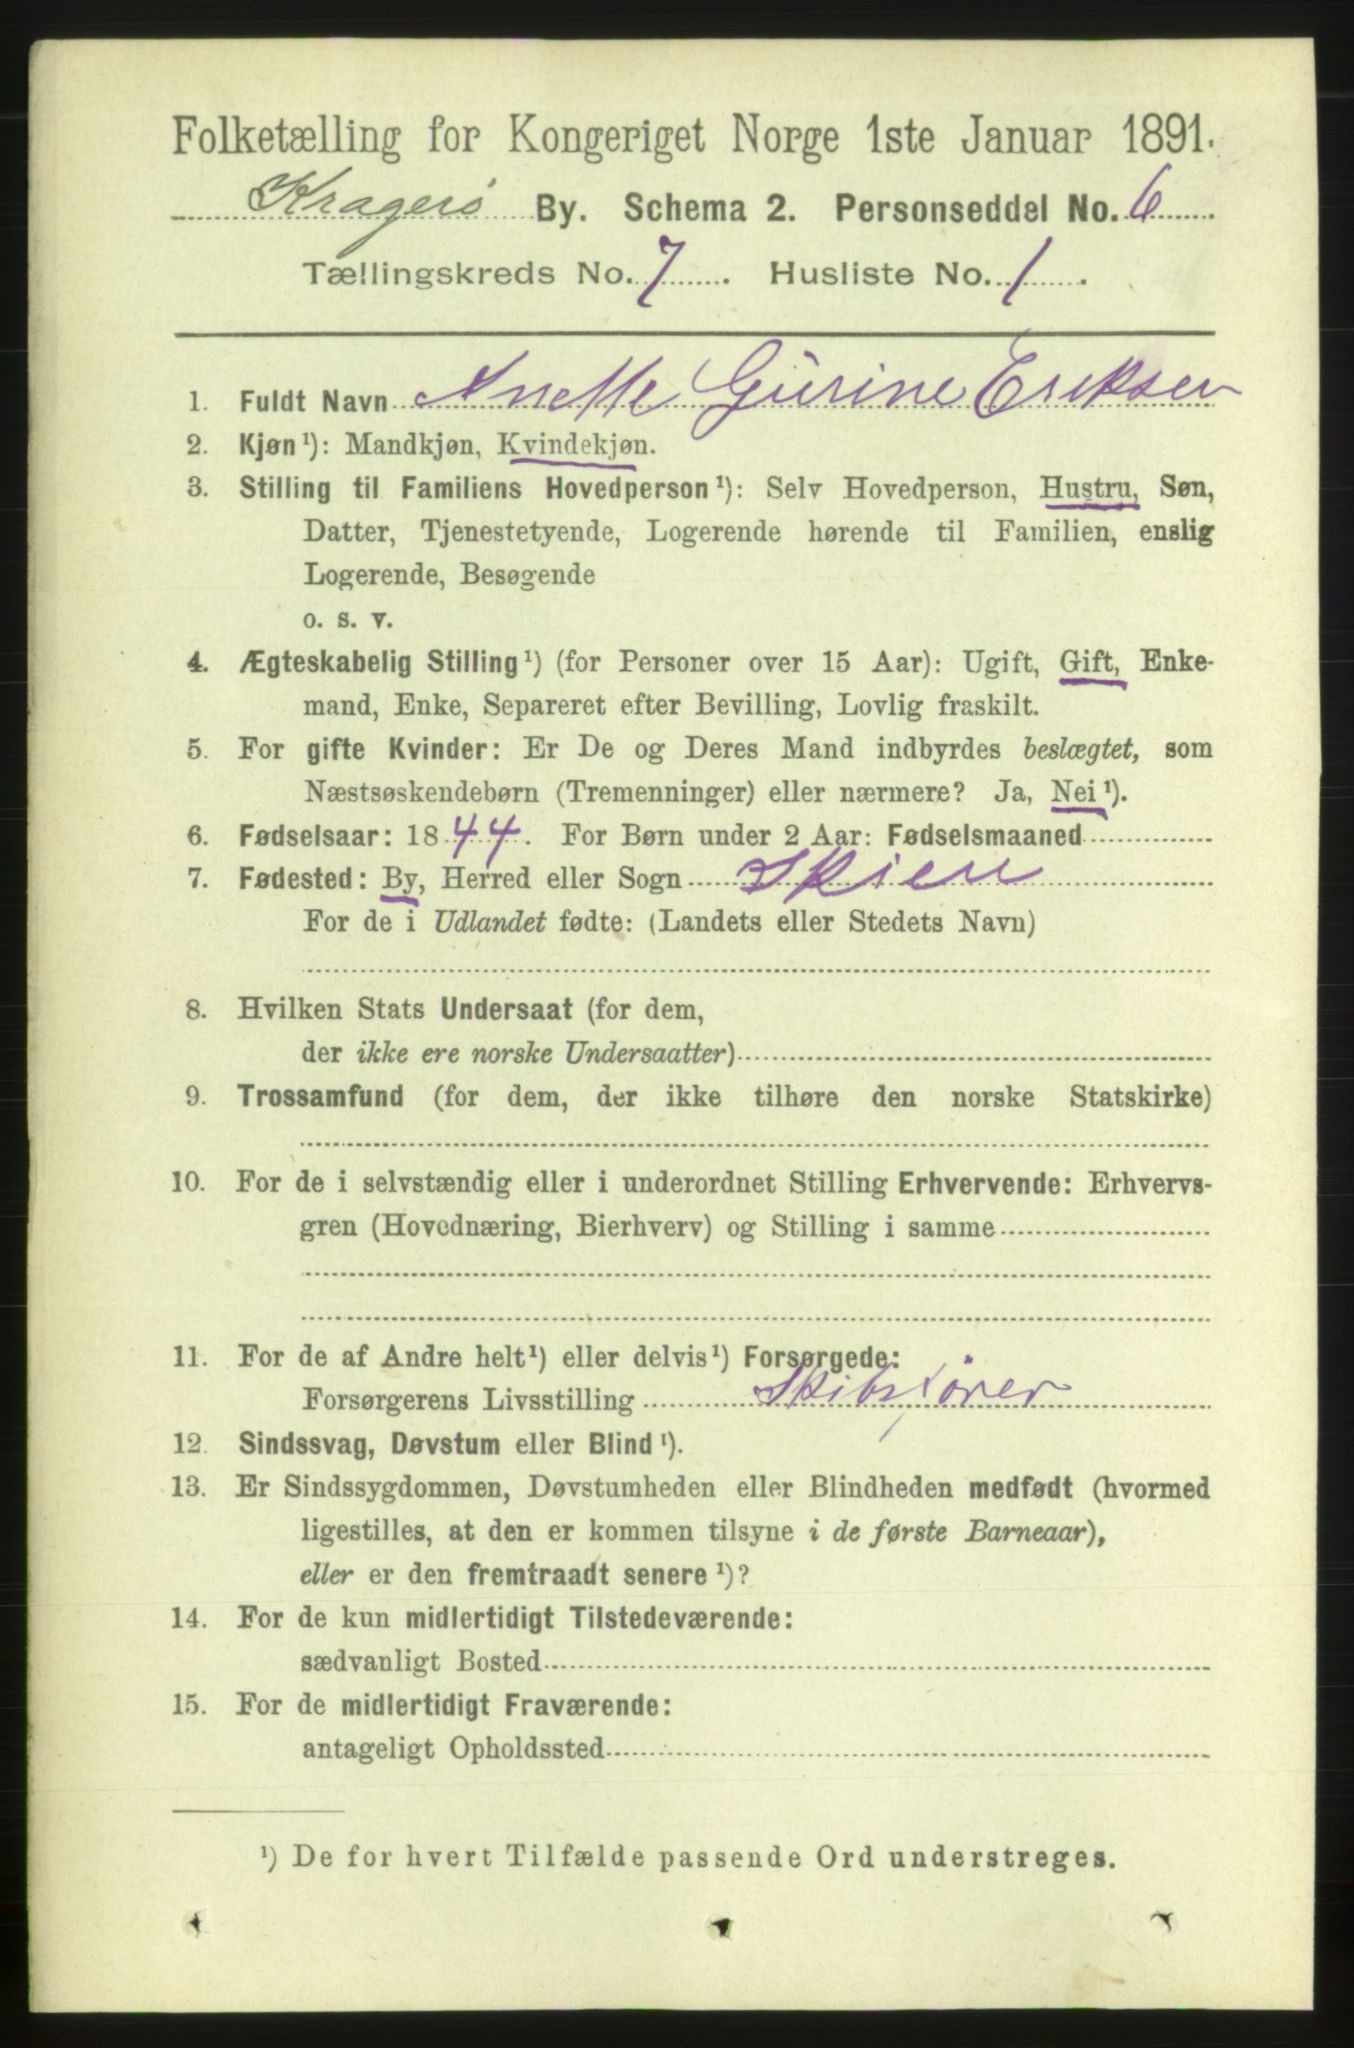 Folketælling for Kongeriget Norge 1ste Januar 1891.
Kragerö By. Schema 2. Personseddel No. 6
Tællingskreds No. 7. Husliste No. 1.
1. Fuldt Navn Anette Gurine Eriksen
2. Kjøn¹): Mandkjøn, Kvindekjøn.
3. Stilling til Familiens Hovedperson¹): Selv Hovedperson, Hustru, Søn,
Datter, Tjenestetyende, Logerende hørende til Familien, enslig
Logerende, Besøgende
o. s. v.
4. Ægteskabelig Stilling¹) (for Personer over 15 Aar): Ugift, Gift, Enke-
mand, Enke, Separeret efter Bevilling, Lovlig fraskilt.
5. For gifte Kvinder: Er De og Deres Mand indbyrdes beslægtet, som
Næstsøskendebørn (Tremenninger) eller nærmere? Ja, Nei¹).
6. Fødselsaar: 1844. For Børn under 2 Aar: Fødselsmaaned
7. Fødested: By, Herred eller Sogn Skien
For de i Udlandet fødte: (Landets eller Stedets Navn)
8. Hvilken Stats Undersaat (for dem,
der ikke ere norske Undersaatter)
9. Trossamfund (for dem, der ikke tilhøre den norske Statskirke)
10. For de i selvstændig eller i underordnet Stilling Erhvervende: Erhvervs-
gren (Hovednæring, Bierhverv) og Stilling i samme
11. For de af Andre helt¹) eller delvis¹) Forsørgede:
Forsørgerens Livsstilling Skibsförer
12. Sindssvag, Døvstum eller Blind¹).
13. Er Sindssygdommen, Døvstumheden eller Blindheden medfødt (hvormed
ligestilles, at den er kommen tilsyne i de første Barneaar),
eller er den fremtraadt senere¹)?
14. For de kun midlertidigt Tilstedeværende:
sædvanligt Bosted
15. For de midlertidigt Fraværende:
antageligt Opholdssted
¹) De for hvert Tilfælde passende Ord understreges.